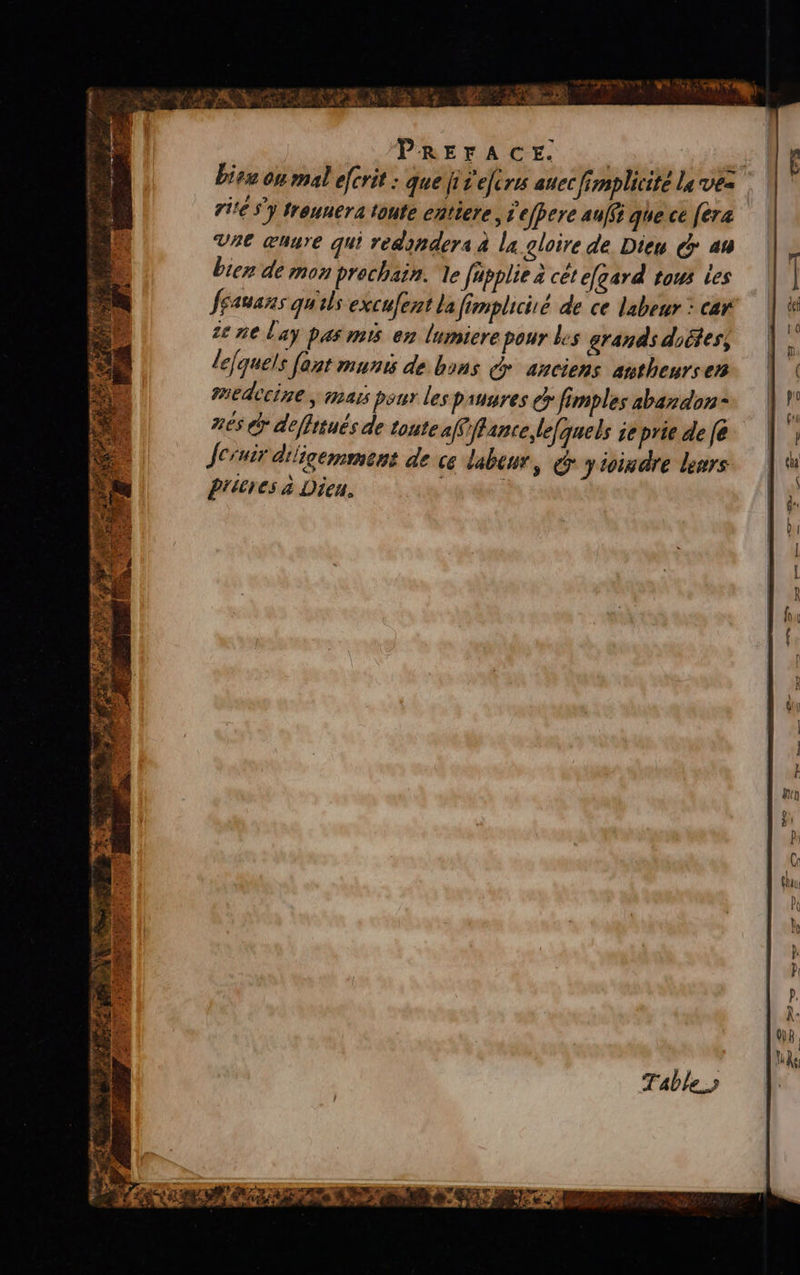 PREFACE.
bien ou mal eſcrit : que ſi i'eſcris auec ſimplicité la ve-
rité s'y treuuera toute entiere, i'eſpere auſſi que ce ſera
vne œuure qui redondera à la gloire de Dieu & au
bien de mon prochain. Ie ſupplie à cét eſgard tous les
ſçauans qu'ils excuſent la ſimplicité de ce labeur : car
ie ne l'ay pas mis en lumiere pour les grands doctes,
leſquels ſont munis de bons & anciens autheurs en
medecine, mais pour les pauures & ſimples abandon-
nés & deſtitués de toute aſſiſtance, leſquels ie prie de ſe
ſeruir diligemment de ce labeur, & y ioindre leurs
prieres à Dieu.
Table